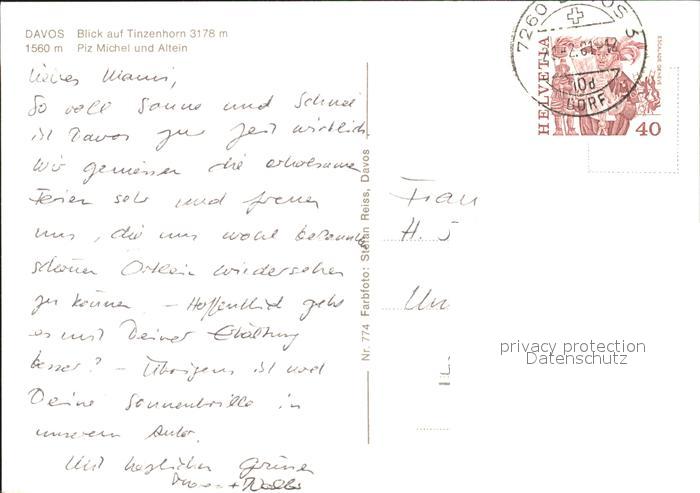 DAVOS Blick auf Tinzenhorn 3178 m
1560 m Piz Michel und Altein
Liebes Mami,
So voll Sonne und Schnee
ist Davos zur Zeit wirklich.
Wir geniessen die erholsamen
Ferien sehr und freuen
uns, die uns wohl bekannten
schönen Örtlein wiedersehen
zu können. – Hoffentlich geht
es mit Deiner Erkältung
besser? – Übrigens ist noch
Deine Sonnenbrille in
unserem Auto.
Mit herzlichen Grüssen
Nr. 774 Farbfoto: Stefan Reiss, Davos
7260 DAVOS 3
DORF
HELVETIA
ESCALADE GENEVE
40
Frau
H. J
Un
privacy protection
Datenschutz